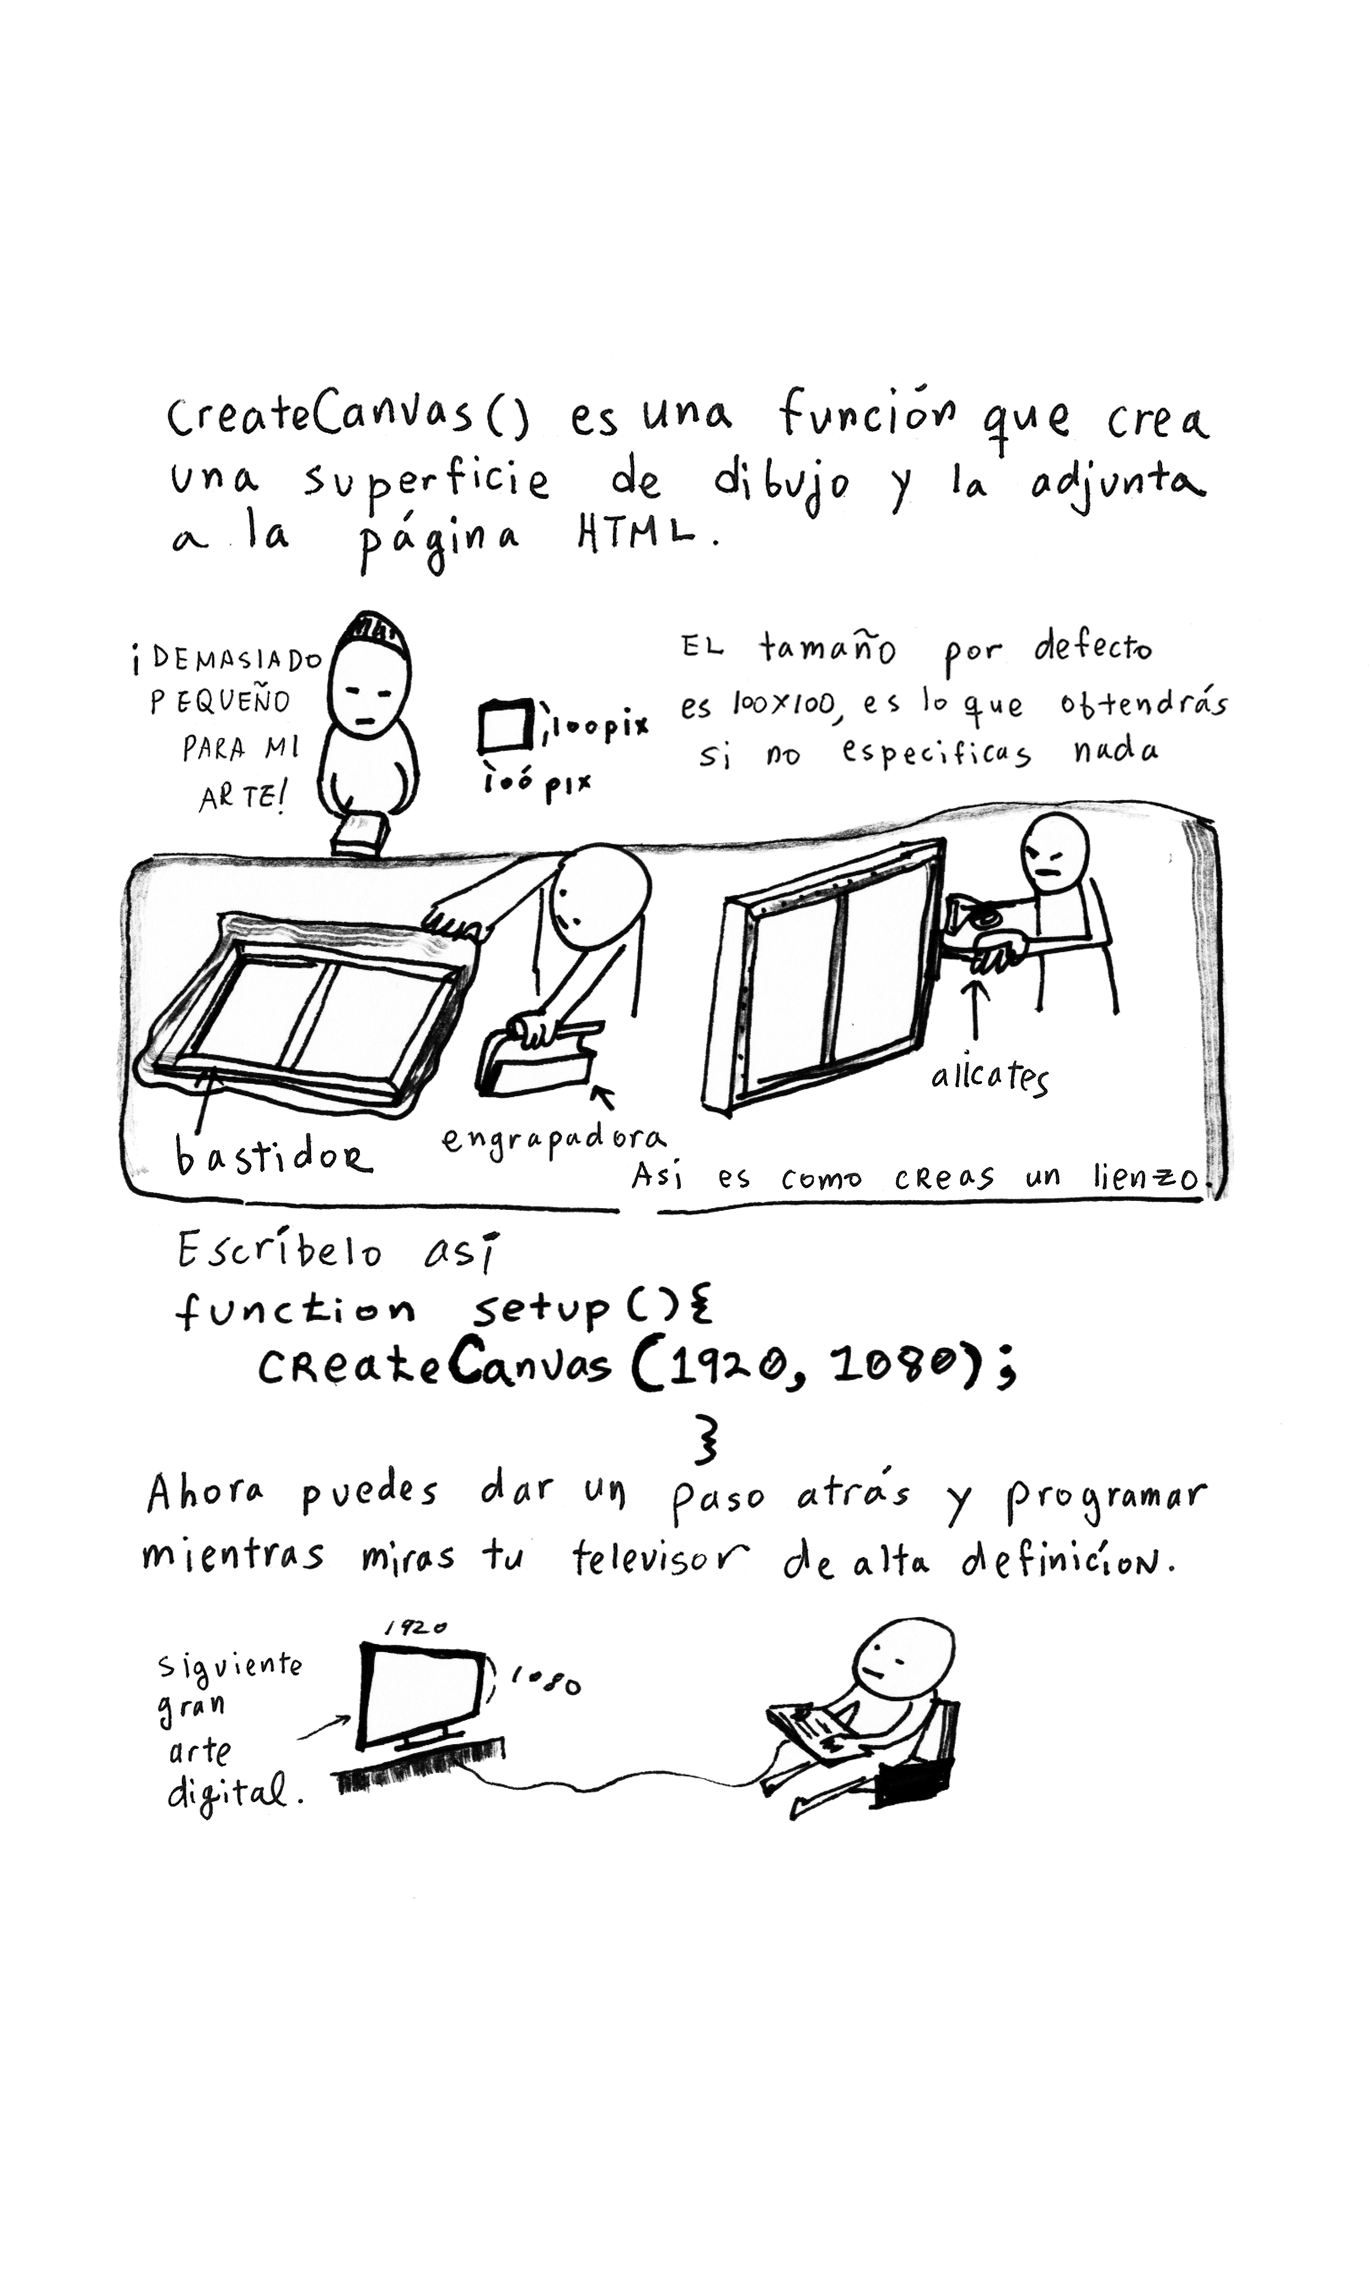 createCanvas() es una función que crea
una superficie de dibujo y la adjunta
a la página HTML.
¡DEMASIADO
PEQUEÑO
PARA MI
ARTE!
100pix
100 pix
EL tamaño por defecto
es 100x100, es lo que obtendrás
si no especificas nada
bastidor
engrapadora
alicates
Así es como creas un lienzo.
Escríbelo así
function setup(){
createCanvas(1920, 1080);
}
Ahora puedes dar un paso atrás y programar
mientras miras tu televisor de alta definición.
siguiente
gran
arte
digital.
1920
1080